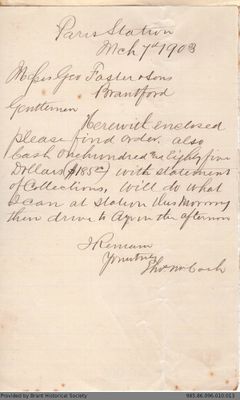 Paris Station
Mch 7th 1903
Messrs Geo Foster & Sons
Brantford
Gentlemen
Herewith enclosed
please find order. also
Cash One hundred & Eighty five
Dollars ($185 00) with statement
of Collections, will do what
I can at Station this Morning
then drive to Ayr in the afternoon
I Remain
Yours truly
Thos
Provided by Brant Historical Society
985.86.096.010.013